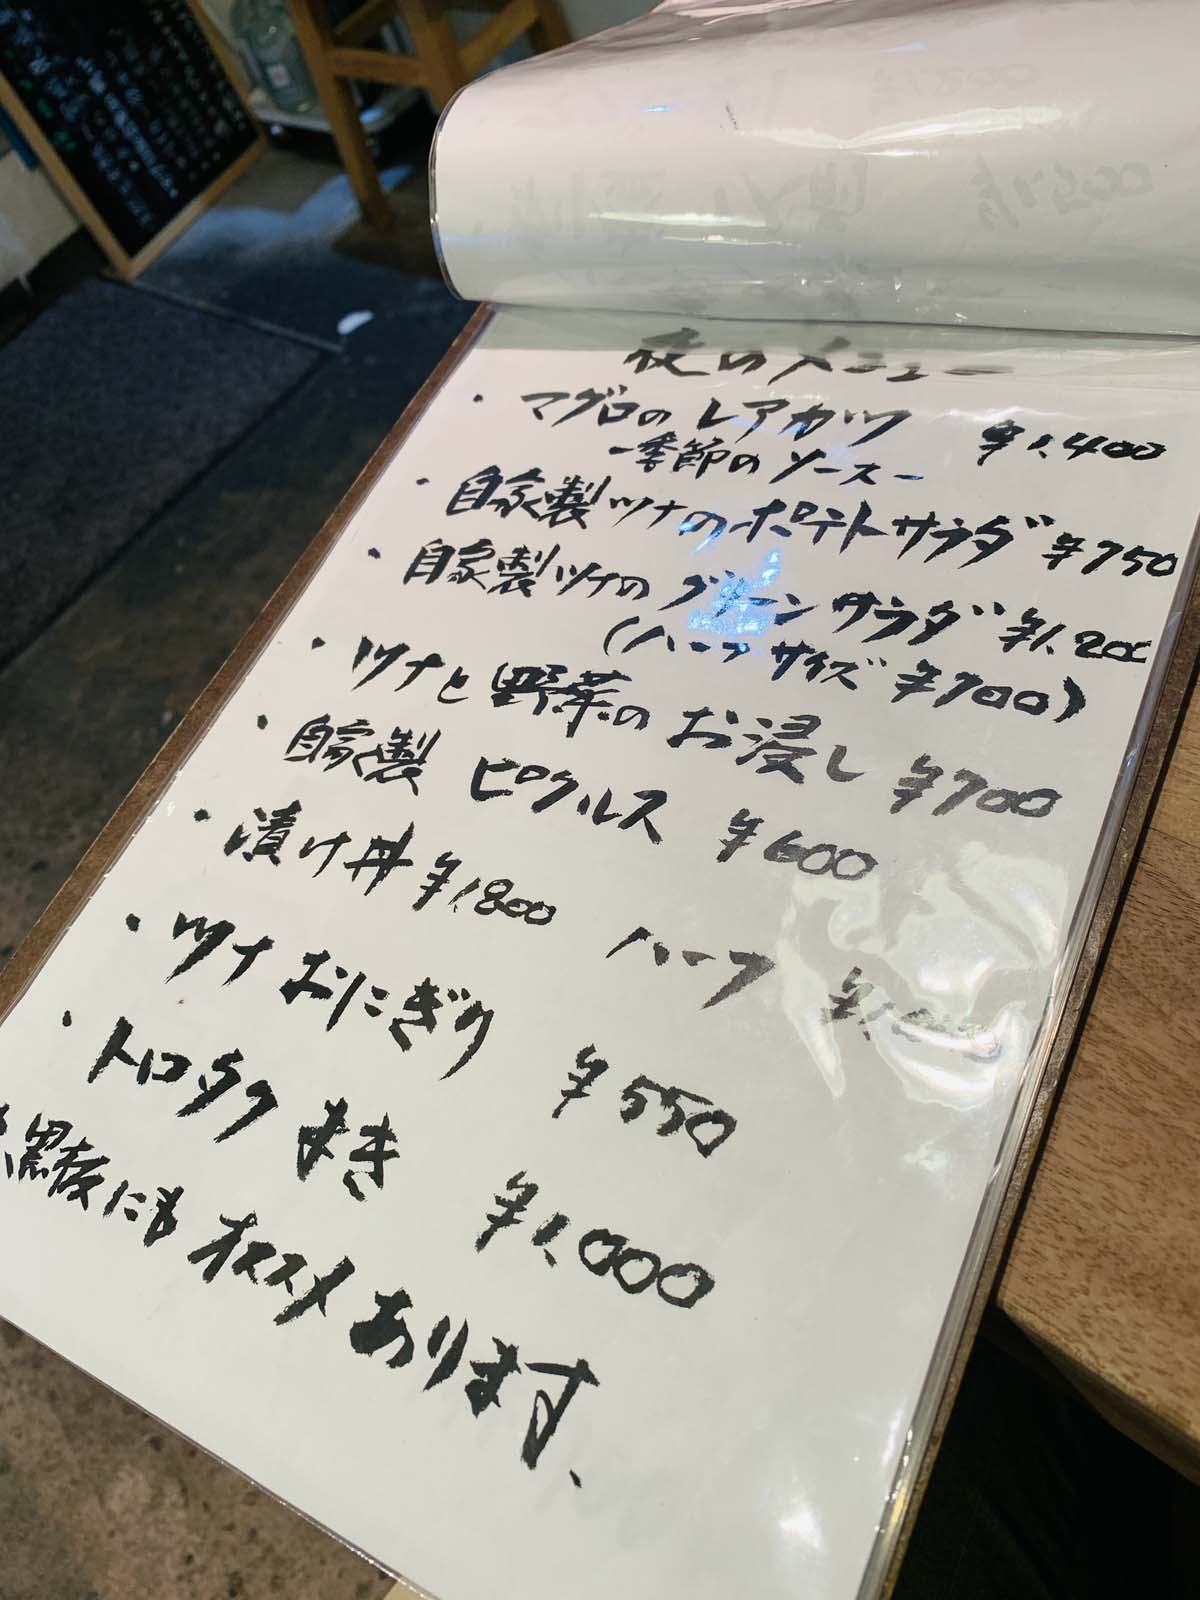 夜のメニュー
・マグロのレアカツ ¥1,400
-季節のソース-
・自家製ツナのポテトサラダ ¥750
・自家製ツナのグリーンサラダ ¥1,200
(ハーフサイズ ¥700)
・ツナと野菜のお浸し ¥700
・自家製 ピクルス ¥600
・漬け丼 ¥1,800 ハーフ
・ツナおにぎり ¥550
・トロタク まき ¥1,000
黒板にもオススメあります、